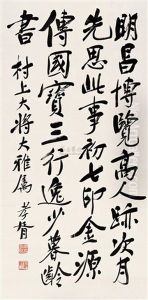 明昌博覽高人跡次月
先思此事初七印金源
傳國寶三行逸少暮齡
書 村上大將大雅屬 孝胥